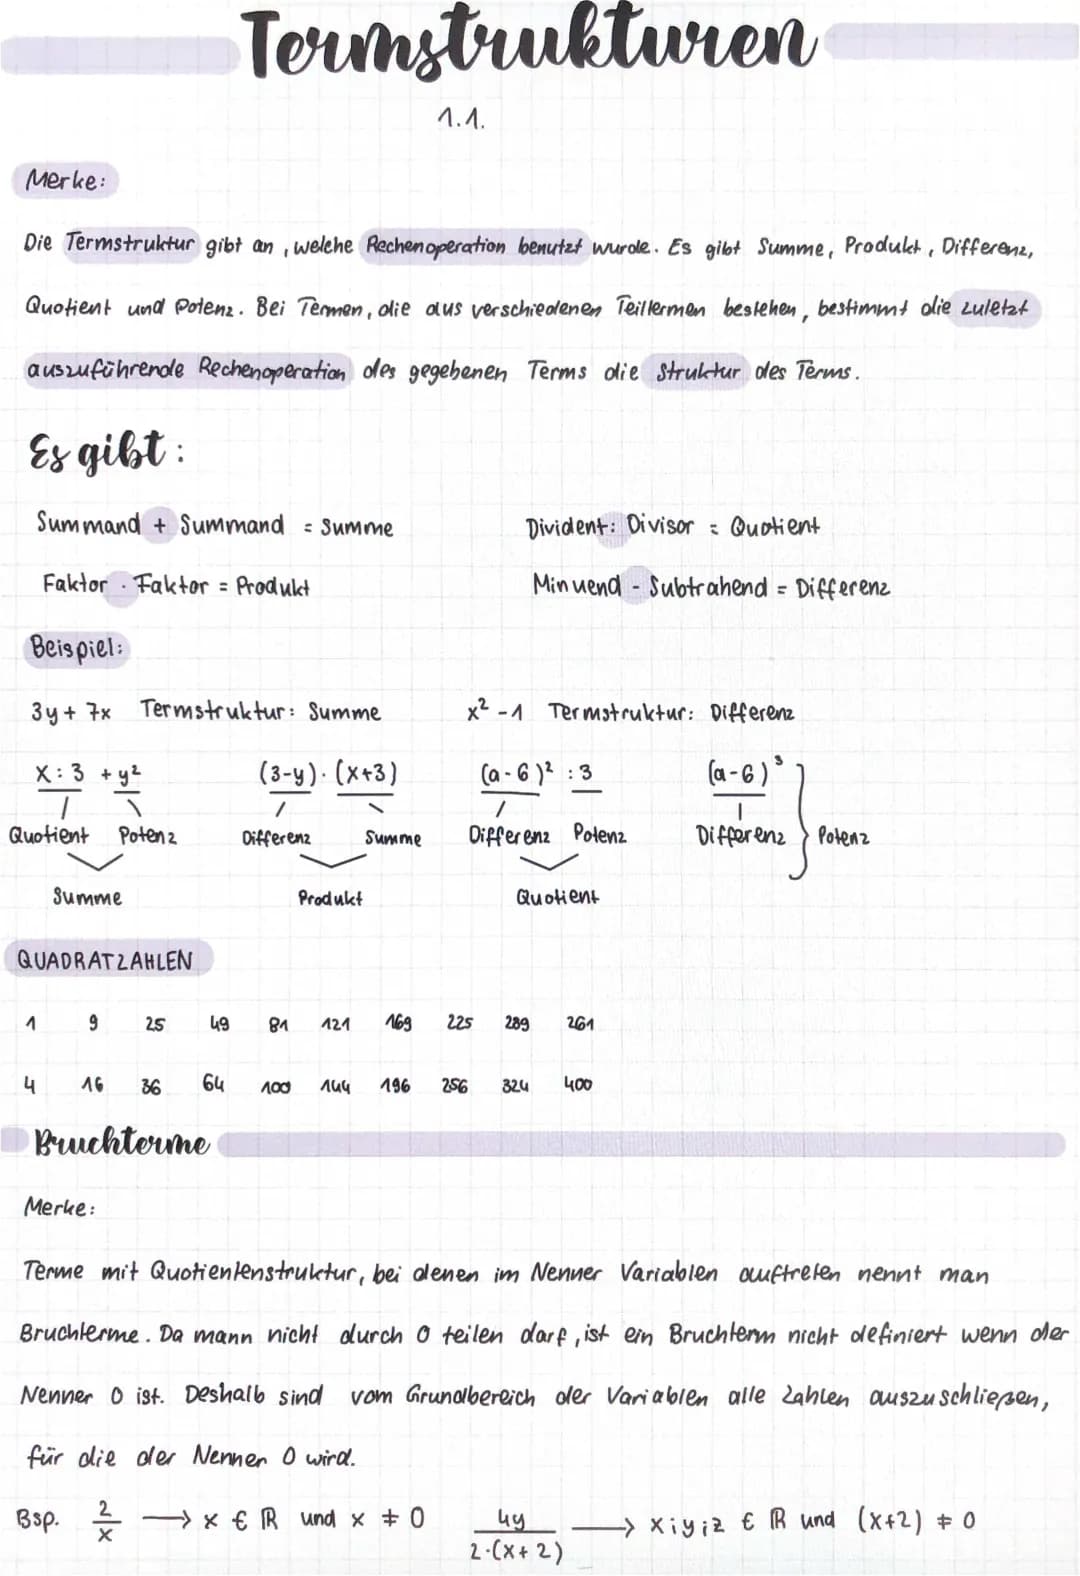 Termstrukturen
1.1.
Merke:
Die Termstruktur gibt an, welche Rechenoperation benutzt wurde. Es gibt Summe, Produkt, Differenz,
Quotient und Potenz. Bei Termen, die aus verschiedenen Teiltermen bestehen, bestimmt die zuletzt
auszuführende Rechenoperation des gegebenen Terms die Struktur des Terms.
Es gibt:
Summand + Summand = Summe
Divident: Divisor = Quotient
Faktor · Faktor = Produkt
Minuend - Subtrahend = Differenz
Beispiel:
3y + 7x Termstruktur: Summe
x² - 1 Termstruktur: Differenz
x : 3 + y²
(3-y) · (x+3)
(a-6)² : 3
(a-6)³
Quotient Potenz
Differenz Summe
Differenz Potenz
Differenz } Potenz
Summe
Produkt
Quotient
QUADRATZAHLEN
1 9 25 49 81 121 169 225 289 261
4 16 36 64 100 144 196 256 324 400
Bruchterme
Merke:
Terme mit Quotientenstruktur, bei denen im Nenner Variablen auftreten nennt man
Bruchterme. Da mann nicht durch 0 teilen darf, ist ein Bruchterm nicht definiert wenn der
Nenner 0 ist. Deshalb sind vom Grundbereich der Variablen alle Zahlen auszuschließen,
für die der Nenner 0 wird.
Bsp. 2/x → x € ℝ und x ≠ 0
4y/2·(x+2) → x;y;z € ℝ und (x+2) ≠ 0